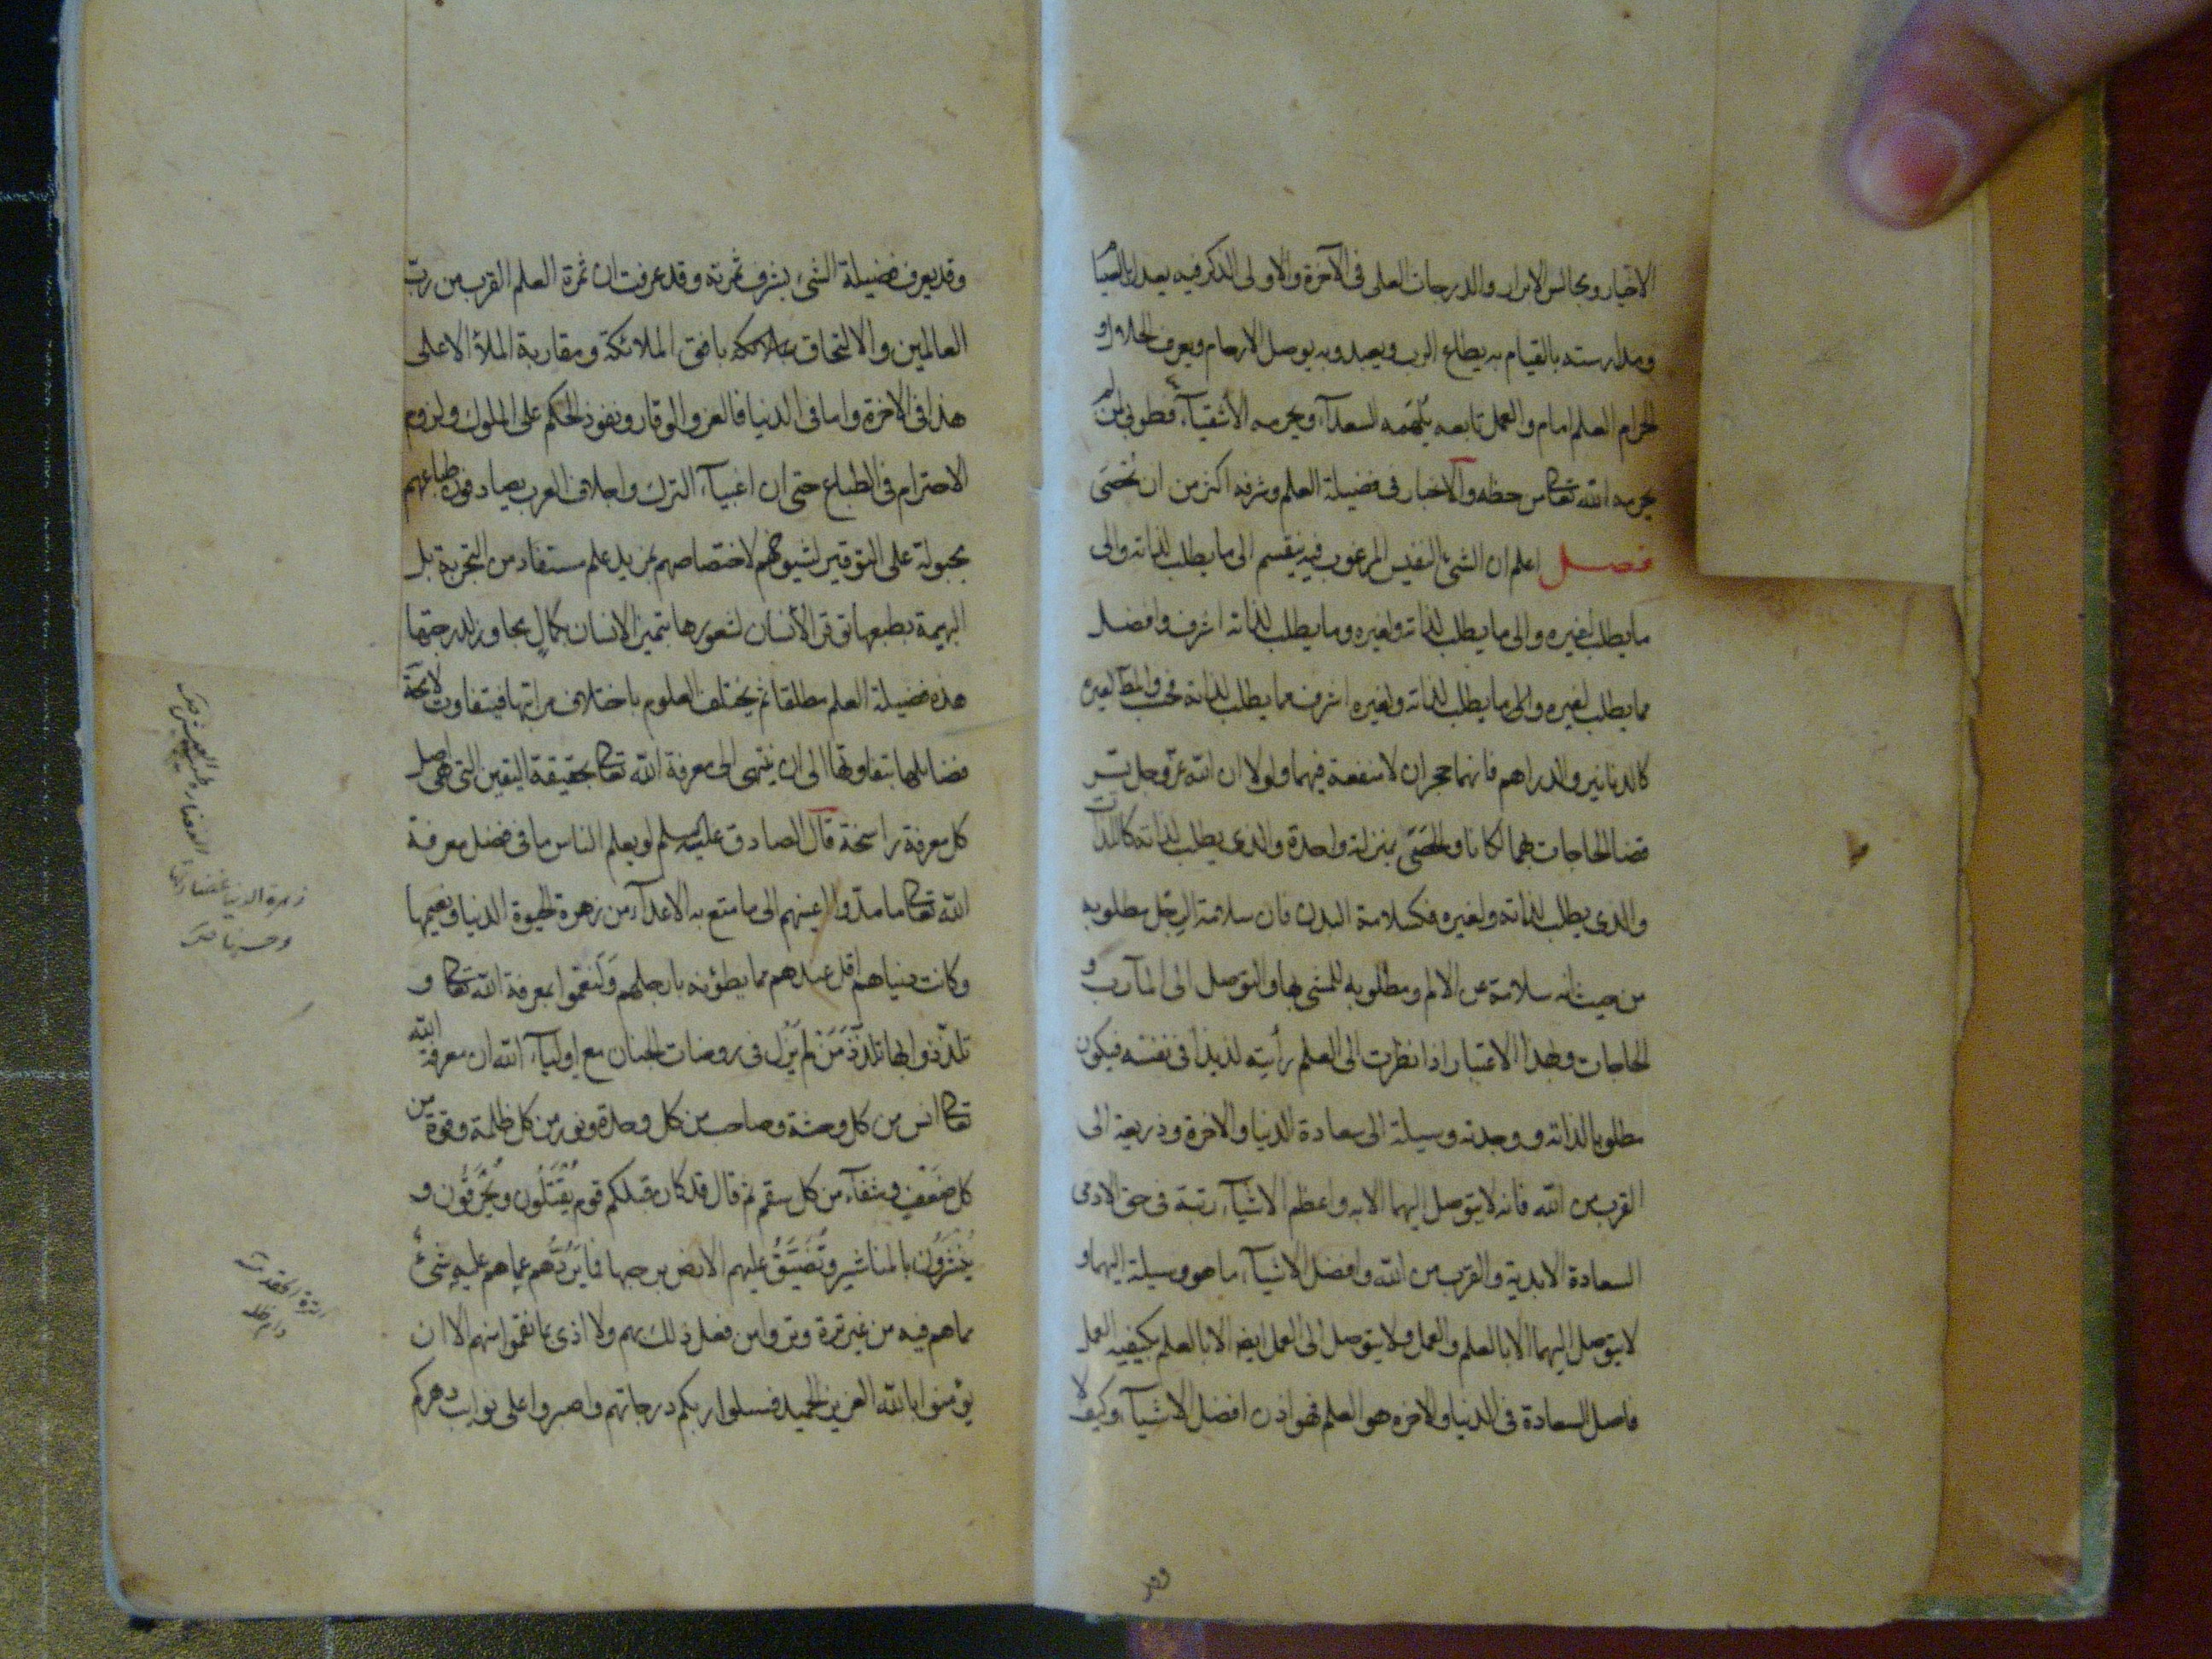 الاخيار ومجالس الابرار والدرجات العلى فى الآخرة والاولى الذكر فيه يعدل بالصيام
ومدارسته بالقيام به يطاع الرب ويعبد وبه يوصل الارحام ويعرف الحلال و
الحرام العلم امام والعمل تابعه يلهمه السعدآء ويحرمه الأشقيآء فطوبى لمن لم
يحرمه الله تعالى من حظه والاخبار فى فضيلة العلم وشرفه اكثر من ان تحصى
فصل اعلم ان الشئ النفيس المرغوب فيه ينقسم الى ما يطلب لذاته والى
ما يطلب لغيره والى ما يطلب لذاته ولغيره وما يطلب لذاته اشرف وافضل
مما يطلب لغيره والى ما يطلب لذاته ولغيره اشرف مما يطلب لذاته فحسب والمطلوب لغيره
كالدنانير والدراهم فانهما حجران لا منفعة فيهما ولولا ان الله عز وجل يسر
قضا الحاجات بهما لكانا والحصى بمنزلة واحدة والذى يطلب لذاته كاللذات
والذى يطلب لذاته ولغيره فكسلامة البدن فان سلامة الرجل مطلوبه
من حيث انه سلامة عن الالم ومطلوبه للمشى بها والتوصل الى المآرب و
الحاجات وبهذا الاعتبار اذا نظرت الى العلم رأيته لذيذا فى نفسه فيكون
مطلوبا لذاته ووجدته وسيلة الى سعادة الدنيا والاخرة وذريعة الى
القرب من الله فانه لا يتوصل اليهما الا به واعظم الاشيآء رتبة فى حق الادمى
السعادة الابدية والقرب من الله وافضل الاشيآء ما هو وسيلة اليهما و
لا يتوصل اليهما الا بالعلم والعمل ولا يتوصل الى العمل ايضا الا بالعلم بكيفيه العمل
فاصل السعادة فى الدنيا والاخره هو العلم فهو اذن افضل الاشيآء وكيف لا
وقد
وقد يعرف فضيلة الشئ بشرف ثمرته وقد عرفت ان ثمرة العلم القرب من رب
العالمين والالتحاق بافق الملائكة ومقاربة الملأ الاعلى
هذا فى الاخرة واما فى الدنيا فالعز والوقار ونفوذ الحكم على الملوك ولزوم
الاحترام فى الطباع حتى ان اغبيآء الترك واجلاف العرب يصادفون طباعهم
مجبولة على التوقير لشيوخهم لاختصاصهم بمزيد علم مستفاد من التجربة بل
البهيمة بطبعها توقر الأنسان لشعورها بتميز الانسان بكمال مجاوز لدرجتها
هذه فضيلة العلم مطلقا ثم يختلف العلوم باختلاف مراتبها فيتفاوت لا محة
فضائلها بتفاوتها الى ان ينتهى الى معرفة الله تعالى بحقيقة اليقين التى هى اصل
كل معرفة راسخة قال الصادق عليه السلم لو يعلم الناس ما فى فضل معرفة
الله تعالى ما مدوا اعينهم الى ما متع به الاعدآء من زهرة الحيوة الدنيا ونعيمها
وكانت دنياهم اقل عندهم مما يطؤنه بارجلهم ولنعموا بمعرفة الله تعالى و
تلذذوا بها تلذذ من لم يزل فى روضات الجنان مع اوليآء الله ان معرفة الله
تعالى انس من كل وحشة وصاحب من كل وحدة ونور من كل ظلمة وقوة من
كل ضعف وشفآء من كل سقم ثم قال قد كان قبلكم قوم يقتلون ويحرقون و
ينشرون بالمناشير وتضيق عليهم الارض برحبها فما يردهم عما هم عليه شئ
مما هم فيه من غير ترة وتروا من فعل ذلك بهم ولا اذى بما نقموا منهم الا ان
يؤمنوا بالله العزيز الحميد فسلوا ربكم درجاتهم واصبروا على نوايب دهركم
زهرة الدنيا غضارتها
وحسنها